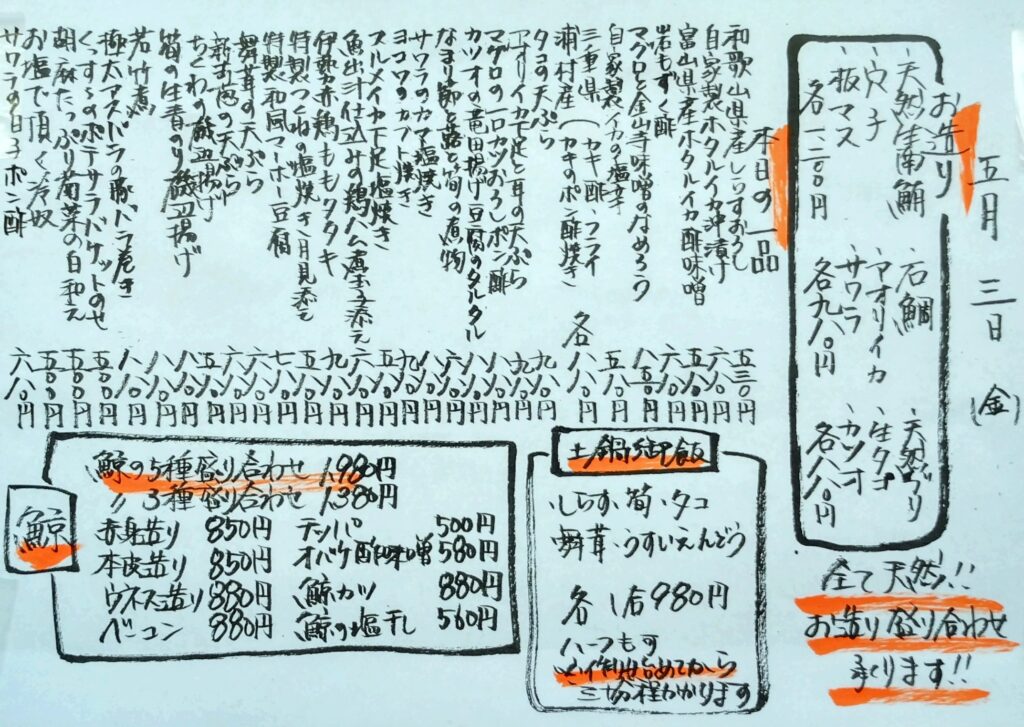 五月三日(金)
お造り
・天然生南鮪
・穴子
・板マス
各一二〇〇円
・石鯛
・アオリイカ
・サワラ
各九八〇円
・天然ブリ
・生タコ
・カツオ
各八八〇円
全て天然!!
お造り盛り合わせ
承ります!!
本日の一品
和歌山県産しらすおろし 五三〇円
自家製ホタルイカ沖漬け 六八〇円
富山県産ホタルイカ酢味噌
岩もずく酢
マグロと金山寺味噌のなめろう
自家製イカの塩辛
三重県浦村産(カキ酢、フライ
カキのポン酢焼き 各八八〇円
タコの天ぷら
アオリイカ下足と耳の天ぷら
マグロのホホカツおろしポン酢
カツオの竜田揚げ豆腐のタルタル
なまり節と蕗と筍の煮物
サワラのカマ塩焼き
ヨコワのカブト焼き
スルメイカ下足塩焼き
魚出汁仕込みの鶏ハム煮玉子添え
伊勢赤鶏ももタタキ
特製つくねの塩焼き月見添え
特製和風マーボー豆腐
舞茸の天ぷら
新玉葱の天ぷら
ちくわの磯辺揚げ
筍の生青のり磯辺揚げ
若竹煮
極太アスパラの豚バラ巻き
くっすーのポテサラバケットのせ
胡麻たっぷり菊菜の白和え 五五〇円
お塩で頂く冷奴
サワラの白子ポン酢 六八〇円
土鍋御飯
・しらす・筍・タコ
・舞茸・うすいえんどう
各1合980円
ハーフもす
※作り始めてから
三十分程かかります
鯨
鯨の5種盛り合わせ 1,980円
〃 3種盛り合わせ 1,380円
赤身造り 850円
本皮造り 850円
ウネス造り 880円
ベーコン 880円
テッパ 500円
オバケ酢味噌 580円
鯨カツ 880円
鯨の塩干し 560円